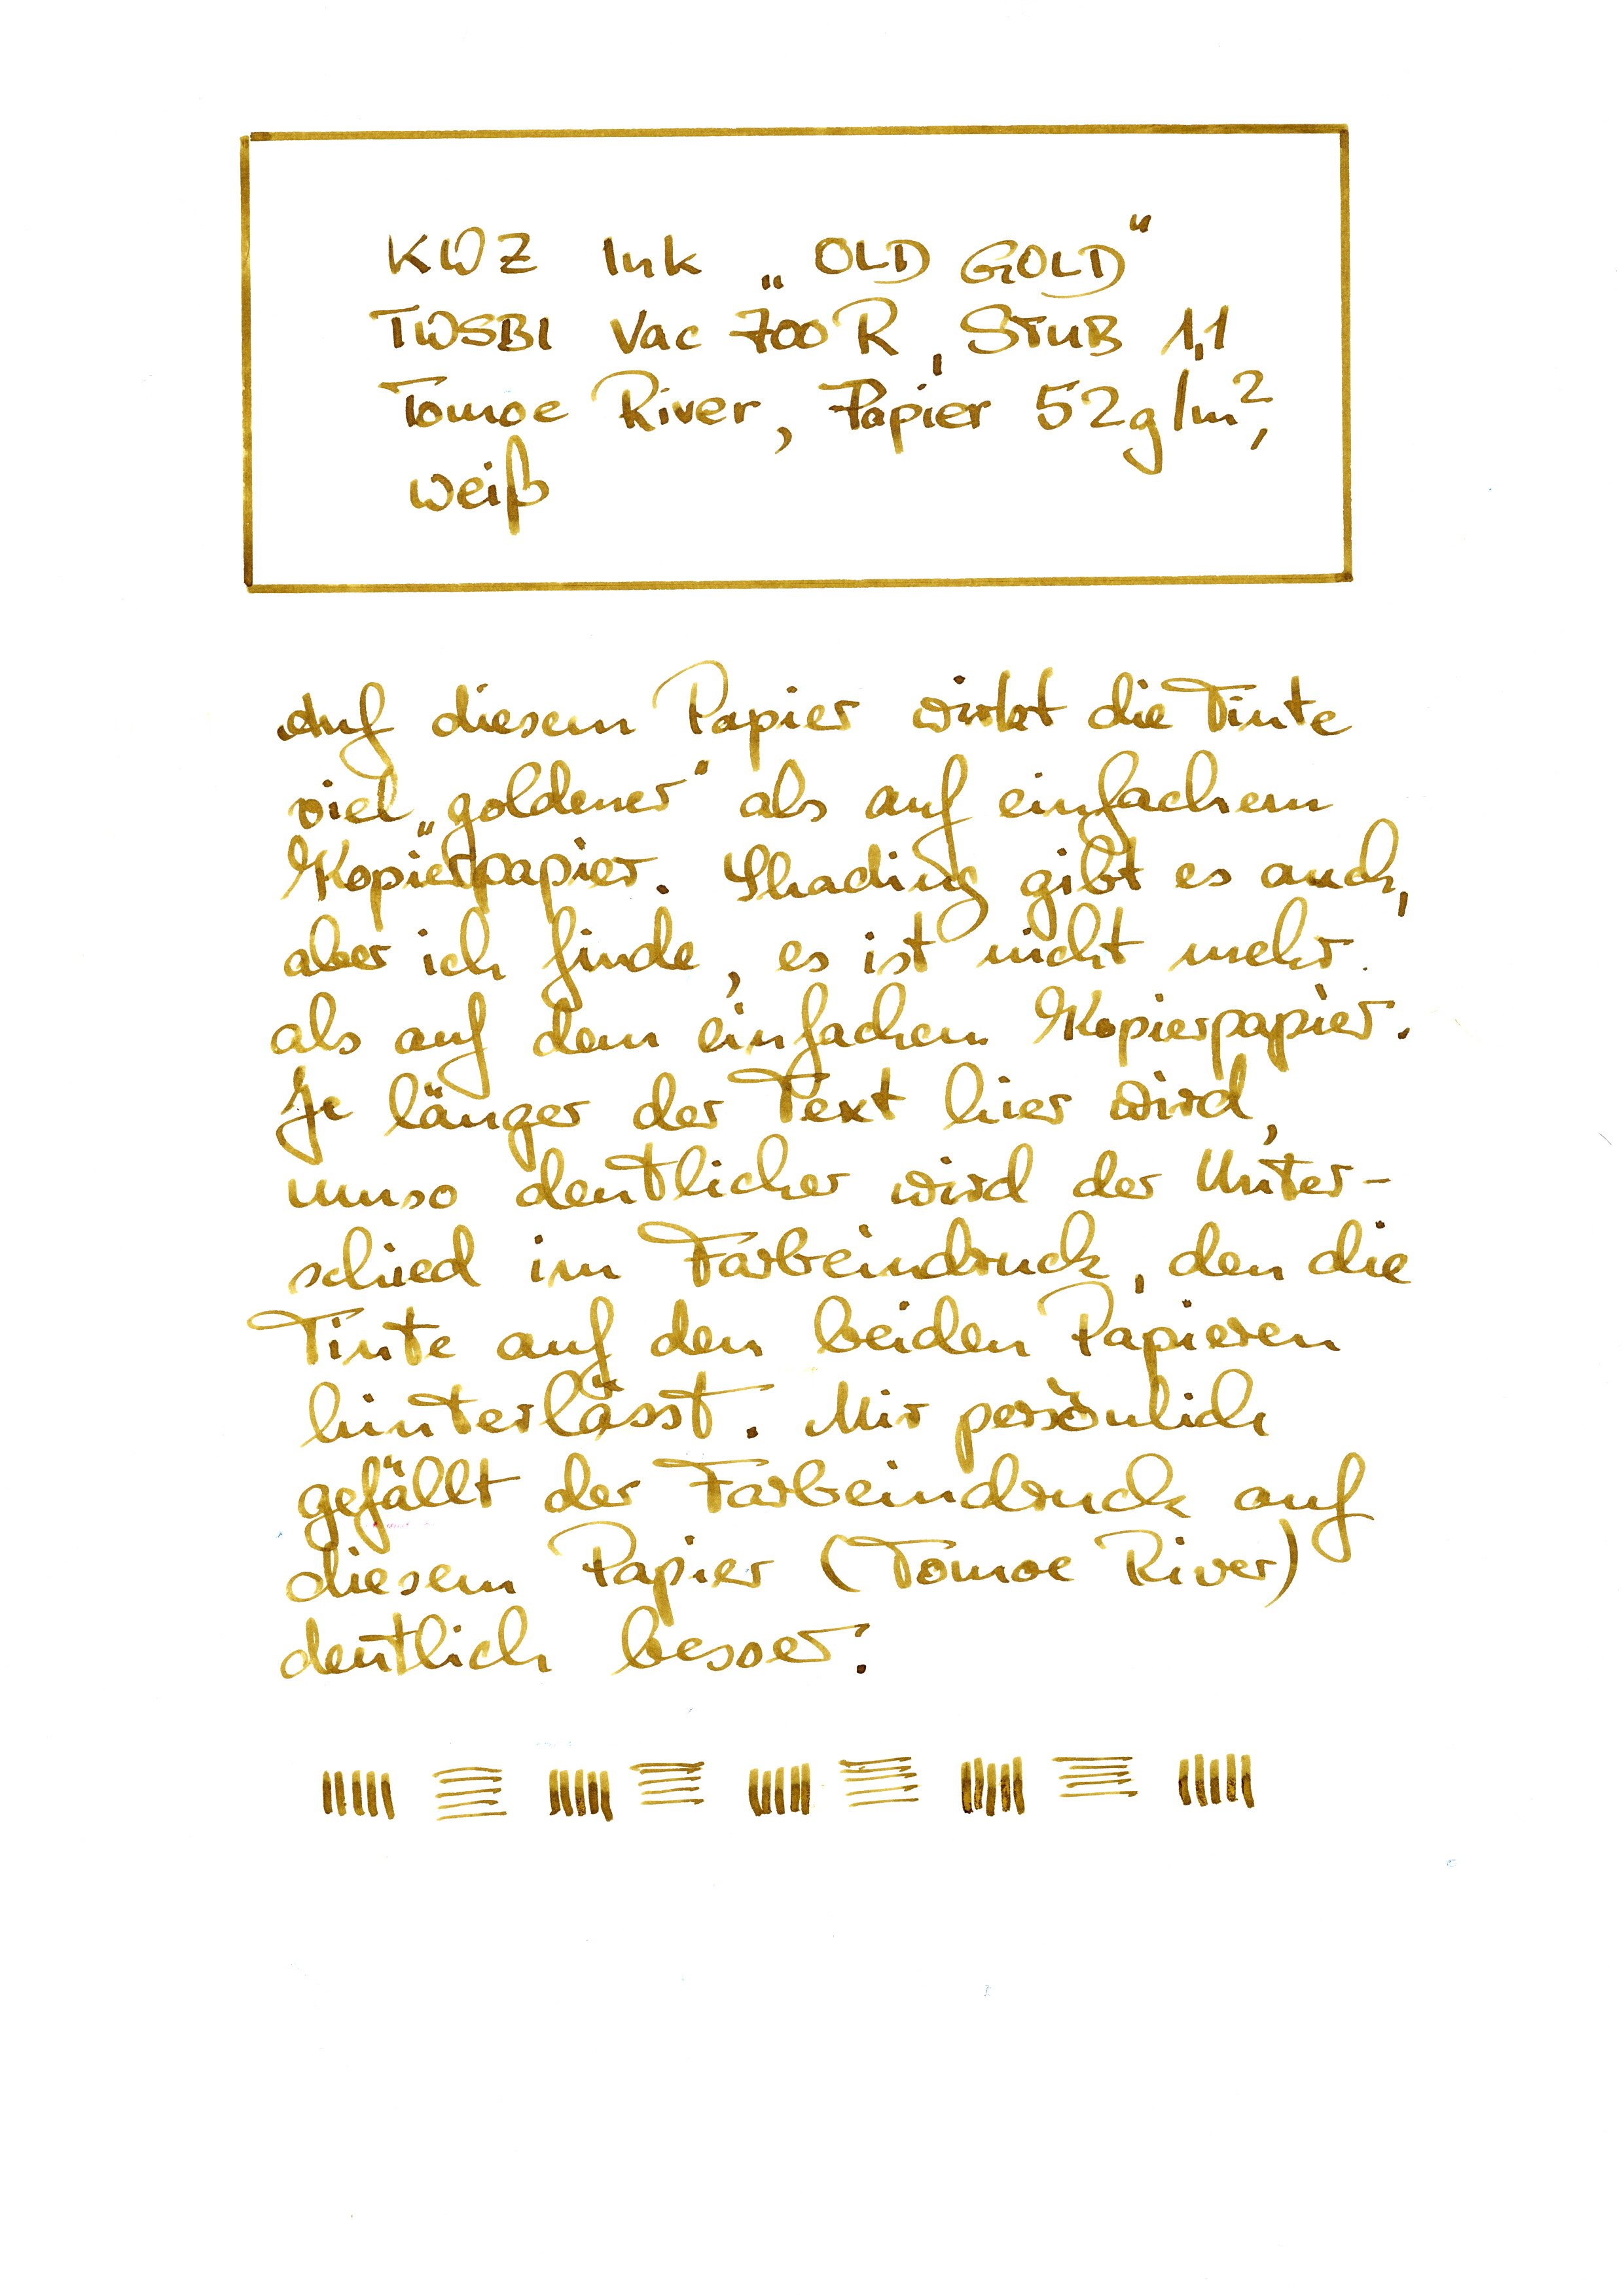 KWZ Ink „OLD GOLD“
TWSBI Vac 700 R, STUB 1,1
Tomoe River, Papier 52g/m²,
weiß
Auf diesem Papier wirkt die Tinte
viel „goldener“ als auf einfachem
Kopierpapier. Shading gibt es auch,
aber ich finde, es ist nicht mehr
als auf dem einfachen Kopierpapier.
Je länger der Text hier wird,
umso deutlicher wird der Unter-
schied im Farbeindruck, den die
Tinte auf den beiden Papieren
hinterlässt. Mir persönlich
gefällt der Farbeindruck auf
diesem Papier (Tomoe River)
deutlich besser.